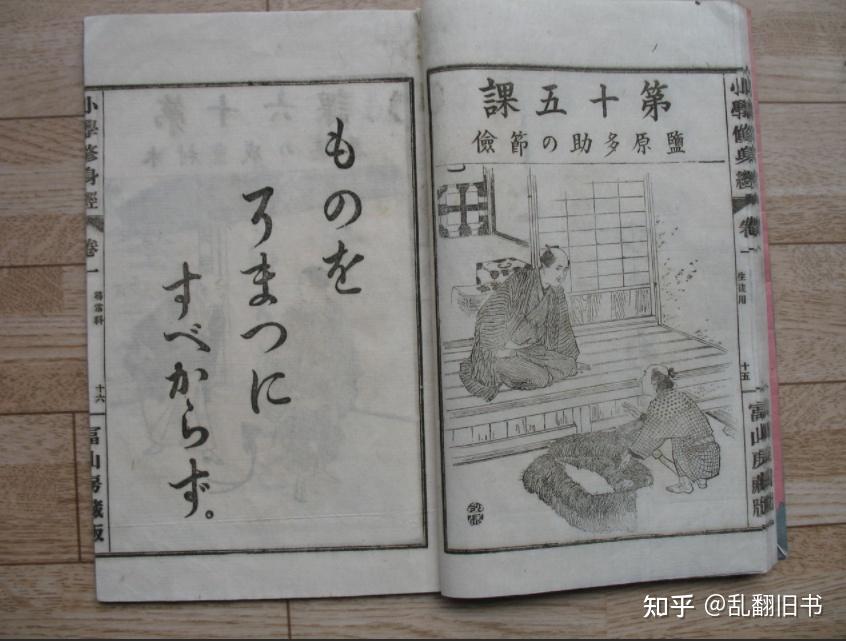 第十五課
鹽原多助の節儉
小學修身經 卷一 生徒用 十五 富山房藏版
ものを
そまつに
すべからず。
小學修身經 卷一 尋常科 十六 富山房藏版
知乎 @乱翻旧书